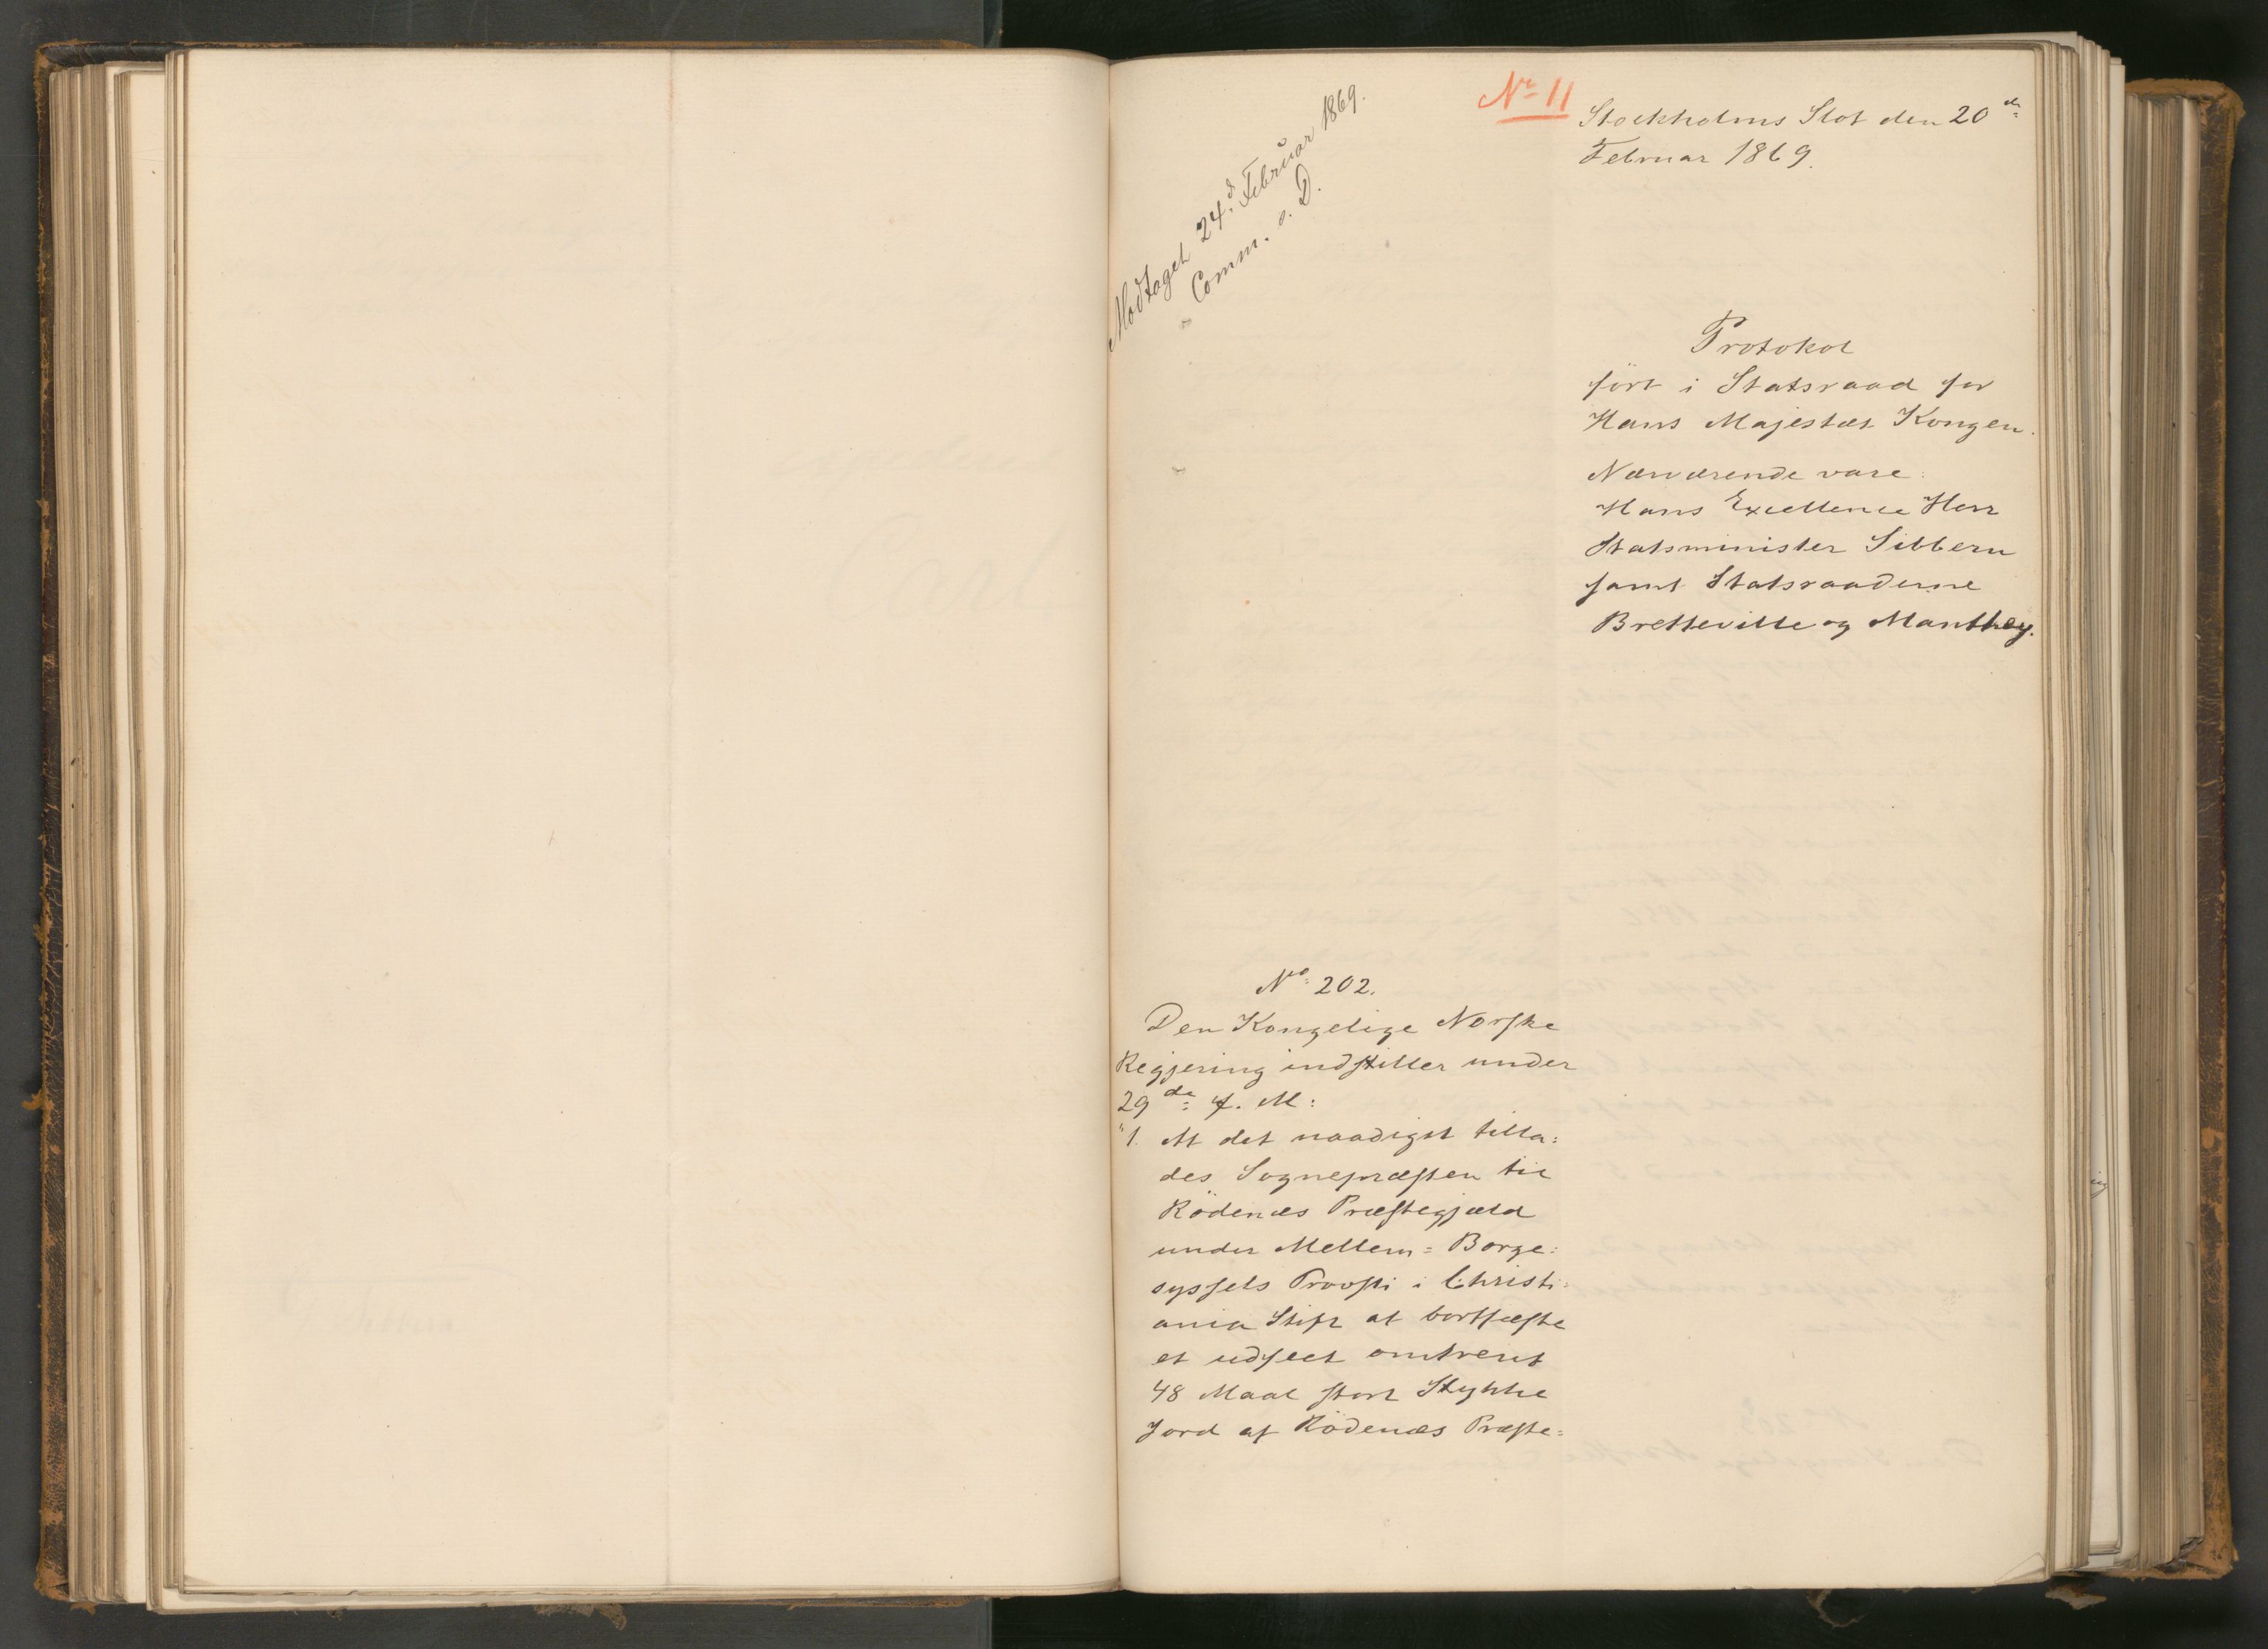 Modtaget 24.d Februar 1869.
Comm. s. D.
No 11
Stockholms Slot den 20de
Februar 1869.
Protokol
ført i Statsraad for
Hans Majestæt Kongen.
Nærværende vare:
Hans Excellence Herr
Statsminister Sibbern
samt Statsraaderne
Bretteville og Manthey.
No 202.
Den Kongelige Norske
Regjering indstiller under
29de f. M:
"1. At det naadigst tilla=
des Sognepræsten til
Rödenæs Præstegjæld
under Mellem=Borge=
syssels Provsti i Christi=
ania Stift at bortfæste
et udseet omtrent
48 Maal stort Stykke
Jord af Rödenæs Præste=